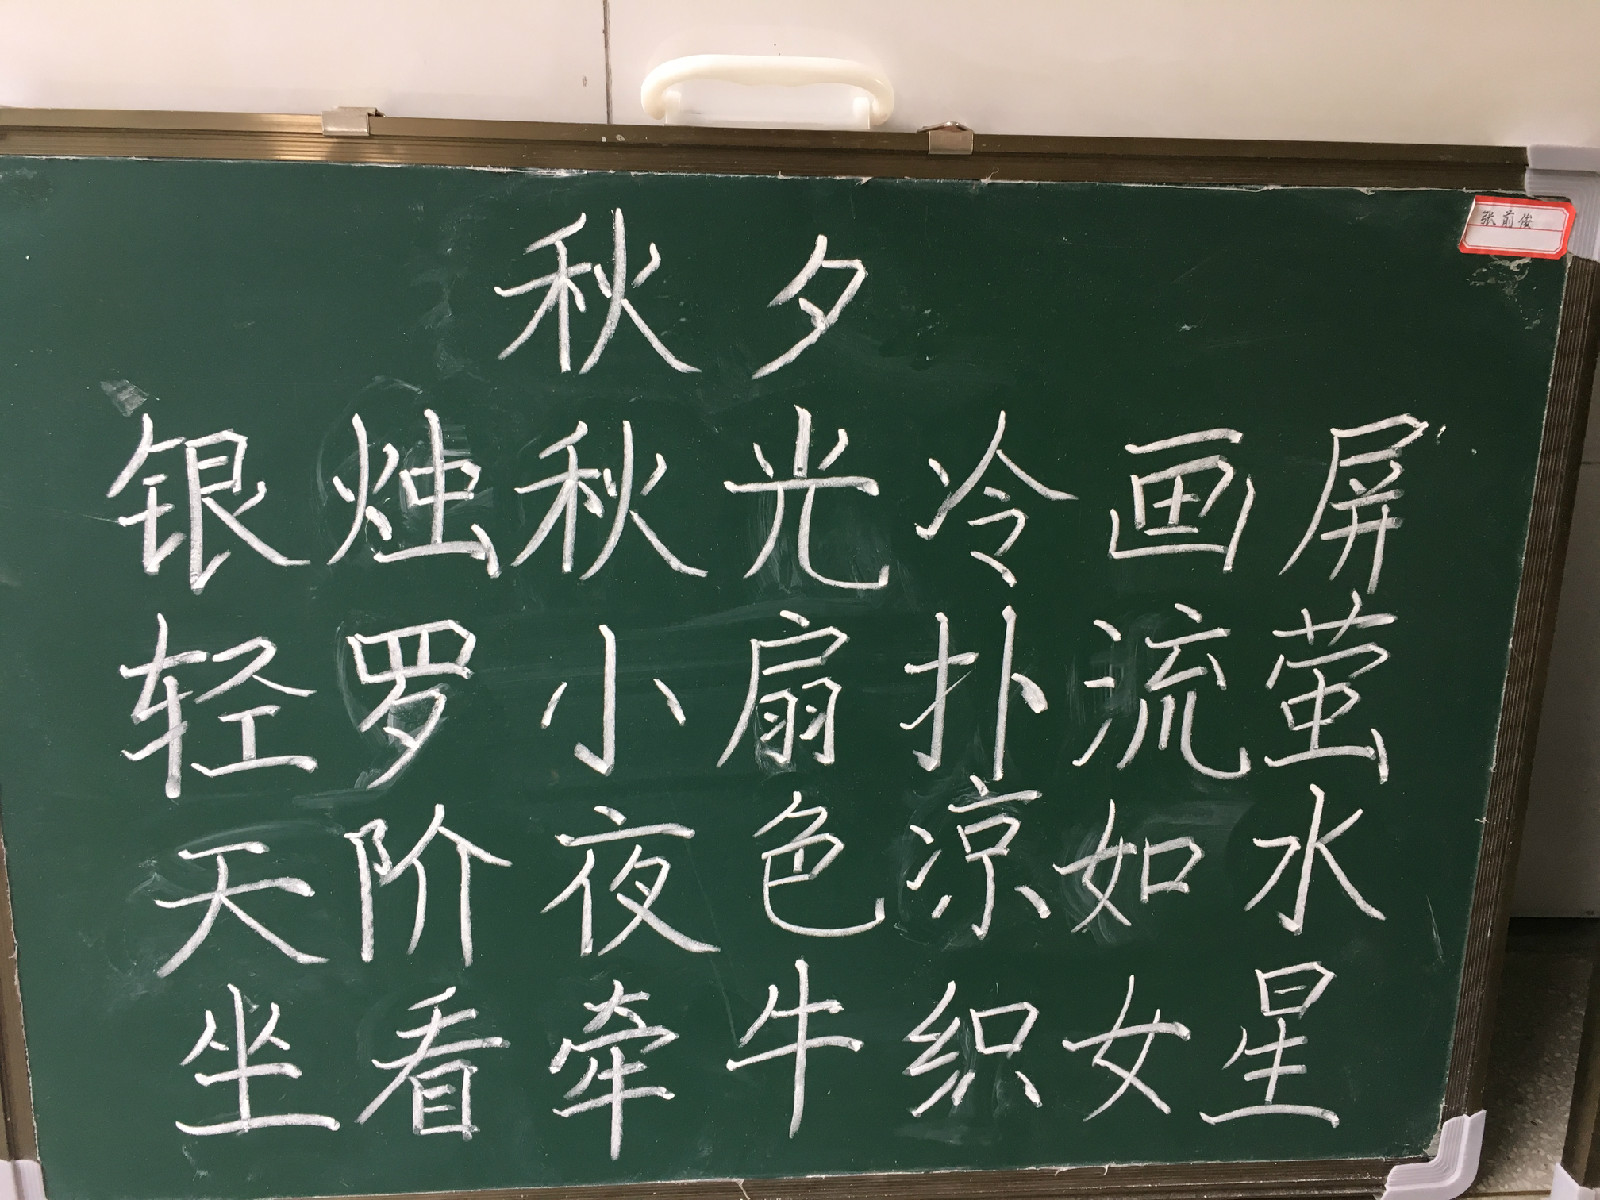 秋夕
银烛秋光冷画屏
轻罗小扇扑流萤
天阶夜色凉如水
坐看牵牛织女星
张前俊